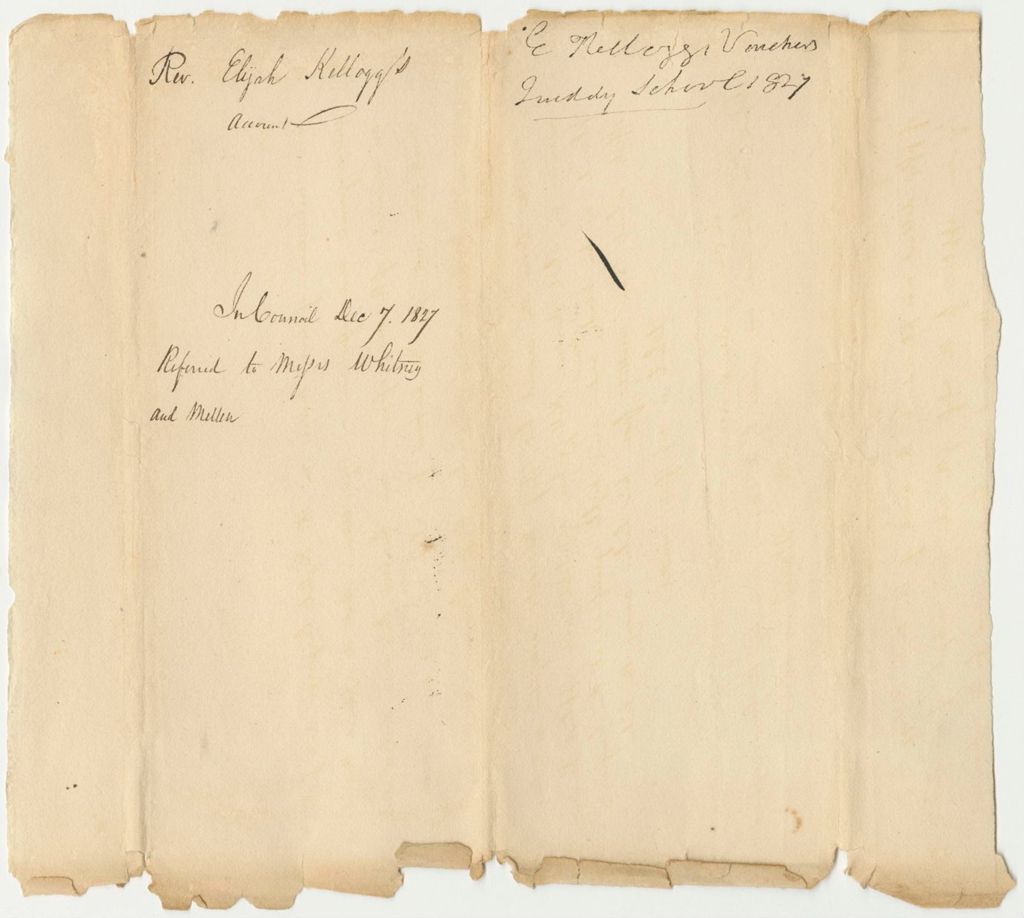 Rev. Elijah Kellogg's
Account
In Council Dec 7. 1827
Referred to Messrs Whitney
and Mellen
E Kelloggs Vouchers
Quoddy School 1827